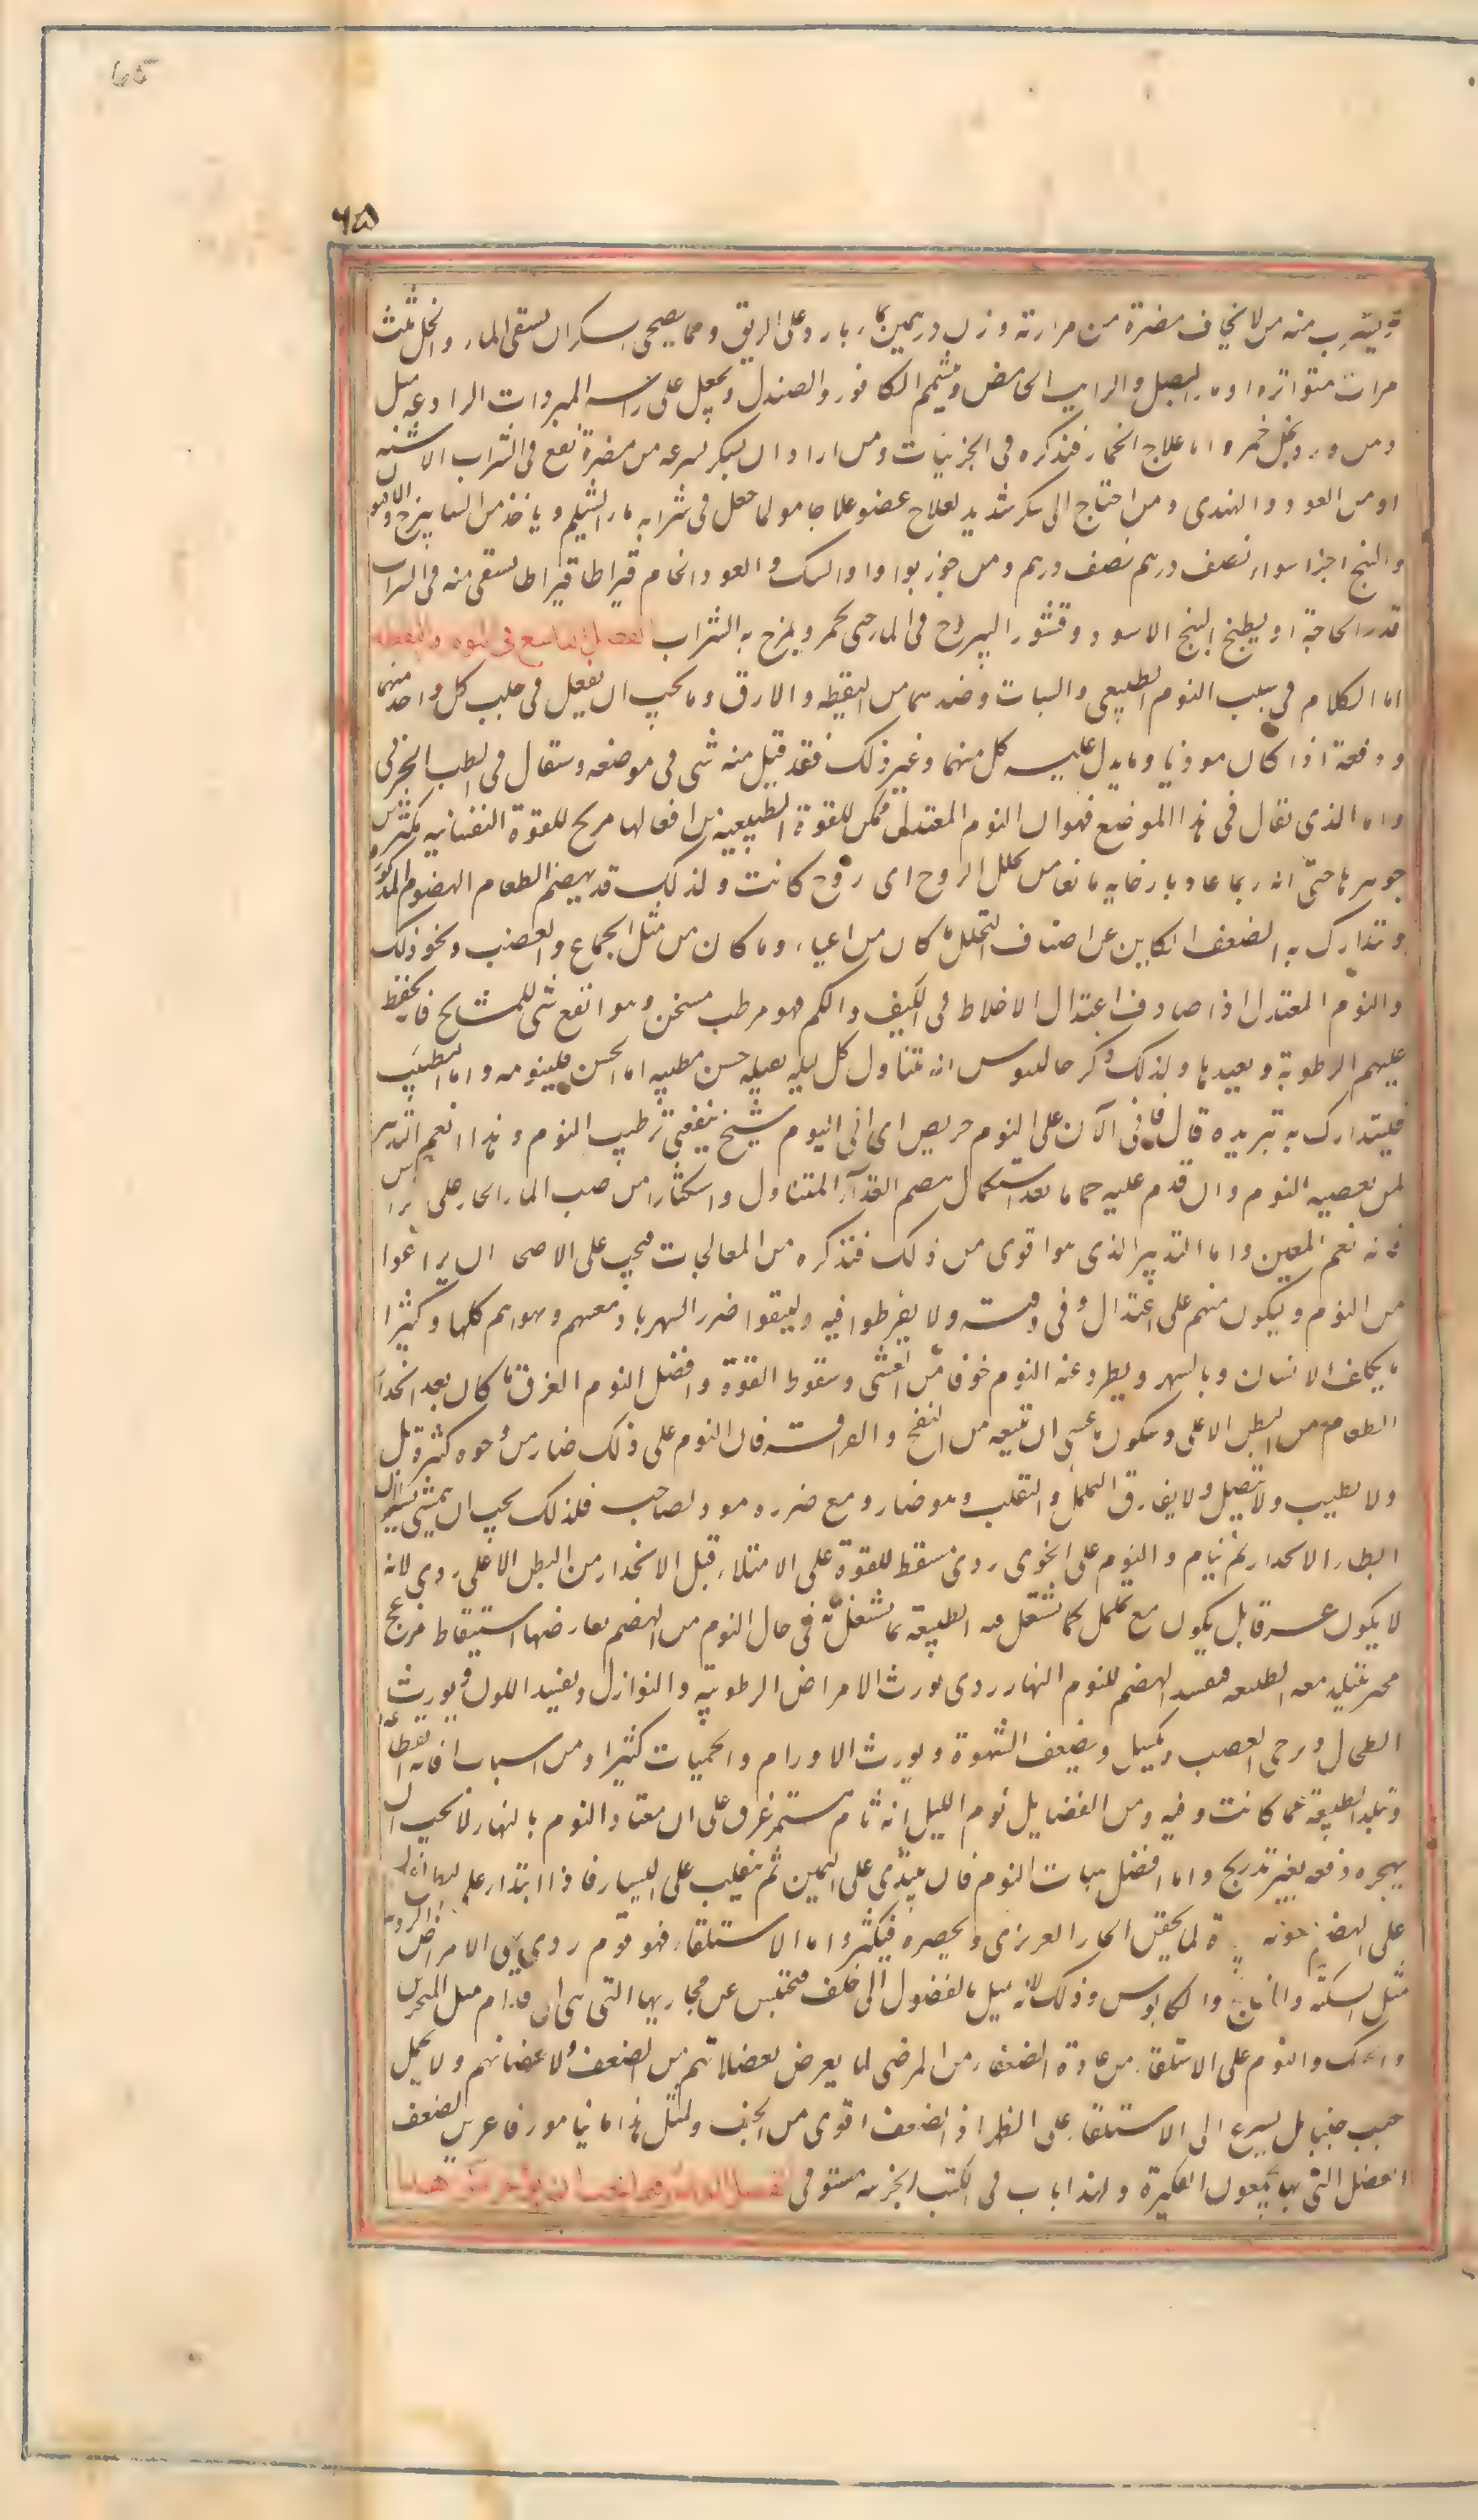 65
٦٥
ويشرب منه من لا يخاف مضرة من مرارته وزن درهمين بماء بارد على الريق ومما يصحى السكران يسقى الماء والخل ثلث
مرات متواترة او ماء البصل والرايب الحامض ويشمم الكافور والصندل ويجعل على راسه المبردات الرادعة مثل
دهن ورد بخل خمر واما علاج الخمار فنذكره فى الجزئيات ومن اراد ان يسكر بسرعه من مضرة نقع فى الشراب الاشنه
او من العود والهندى ومن احتاج الى سكر شديد لعلاج عضو علاجا مولما جعل فى شرابه ماء الشيلم وياخذ من الشاهترج والافيون
والبنج اجزا سواء نصف درهم نصف درهم ومن جوز بوا والسك والعود الخام قيراطا قيراطا يسقى منه فى الشراب
قدر الحاجة او يطبخ البنج الاسود وقشور اليبروح فى الماء حتى يحمر ويمزج به الشراب الفصل التاسع فى النوم واليقظه
اما الكلام فى سبب النوم الطبيعى والسبات وضدهما من اليقظه والارق وما يجب ان يفعل فى جلب كل واحد منهما
ودفعه اذا كان موذيا وما يدل عليه كل منهما وغير ذلك فقد قيل منه شى فى موضعه وسيقال فى الطب الجزئى
واما الذى يقال فى هذا الموضع فهو ان النوم المعتدل ممكن للقوة الطبيعيه من افعالها مريح للقوة النفسانيه مكثر من
جوهرها حتى انه ربما عاد بارخايه مانعا من تحلل الروح اى روح كانت ولذلك قد يهضم الطعام الهضوم المذكوره
وتدارك به الضعف الكاين عن اصناف التحلل ما كان من اعياء وما كان من مثل الجماع والغضب ونحو ذلك
والنوم المعتدل اذا صادف اعتدال الاخلاط فى الكيف والكم فهو مرطب مسخن وهو انفع شى للمشايخ فانه يحفظ
عليهم الرطوبة ويعيدها ولذلك ذكر جالينوس انه يتناول كل ليله بقيله خس مطيبه اما الخس فلينومه واما التطيب
فليتدارك به تبريده قال فانى الآن على النوم حريص اى انى اليوم شيخ ينفعنى ترطيب النوم وهذا انعم التدبير
لمن يعصيه النوم وان قدم عليه حماما بعد استكمال هضم الغذاء المتناول واستكثارا من صب الماء الحار على الراس
فانه نعم المعين واما التدبير الذى هو اقوى من ذلك فنذكره من المعالجات فيجب على الاصحا ان يراعوا
من النوم ويكون منهم على اعتدال وفى وقته ولا يفرطوا فيه وليتقوا ضرر السهر بادمغتهم وقواهم كلها وكثيرا
ما يكلف الانسان وبالسهر ويطرد عنه النوم خوفا من الغشى وسقوط القوة وافضل النوم الغرق ما كان بعد انحدار
الطعام من البطن الاعلى وسكون ما عسى ان يتبعه من النفخ والقراقر فان النوم على ذلك ضار من وجوه كثيرة بل
ولا يطيب ولا يتصل ولا يفارق التململ والتقلب وهو ضار ومع ضرره موذ لصاحبه فلذلك يجب ان يمشى يسيرا ان
ابطاء الانحدار ثم ينام والنوم على الخوى ردى مسقط للقوة على الامتلاء قبل الانحدار من البطن الاعلى ردى لانه
لا يكون غرقا بل يكون مع تململ كما تشتغل معه الطبيعة بما تشتغل به فى حال النوم من الهضم يعارضها استيقاظ مزعج
محير تتبلد معه الطبيعه فيفسد الهضم للنوم النهار ردى يورث الامراض الرطوبيه والنوازل ويفسد اللون ويورث
الطحال ويرخى العصب ويكسل ويضعف الشهوة ويورث الاورام والحميات كثيرا ومن اسباب افاته انقطاعه
وتبلد الطبيعة عما كانت وفيه ومن الفضايل نوم الليل انه تام مستمر غرق على ان معتاد النوم بالنهار لا يجب ان
يهجره دفعه بغير تدريج واما افضل هيات النوم فان يبتدى على اليمين ثم ينقلب على اليسار فاذا ابتداء على
على الهضم معونه لما يحقن الحار الغريزى ويحصره فيكثر واما الاستلقاء فهو نوم ردى يهى الامراض الرديه
مثل السكته والفالج والكابوس وذلك لانه يميل بالفضول الى خلف فتحتبس عن مجاريها التى هى الى قدام مثل المنخرين
والحنك والنوم على الاستلقاء من عادة الضعفاء من المرضى لما يعرض لعضلاتهم من الضعف ولاعضائهم ولا يحمل
جنب جنبا بل يسرع الى الاستلقاء على الظهر اذ الضعف اقوى من الجنب ولمثل هذا ما ينامون فاغرين لضعف
العضل التى بها يجمعون الفكين ولهذا باب فى الكتب الجزئيه مستوفى